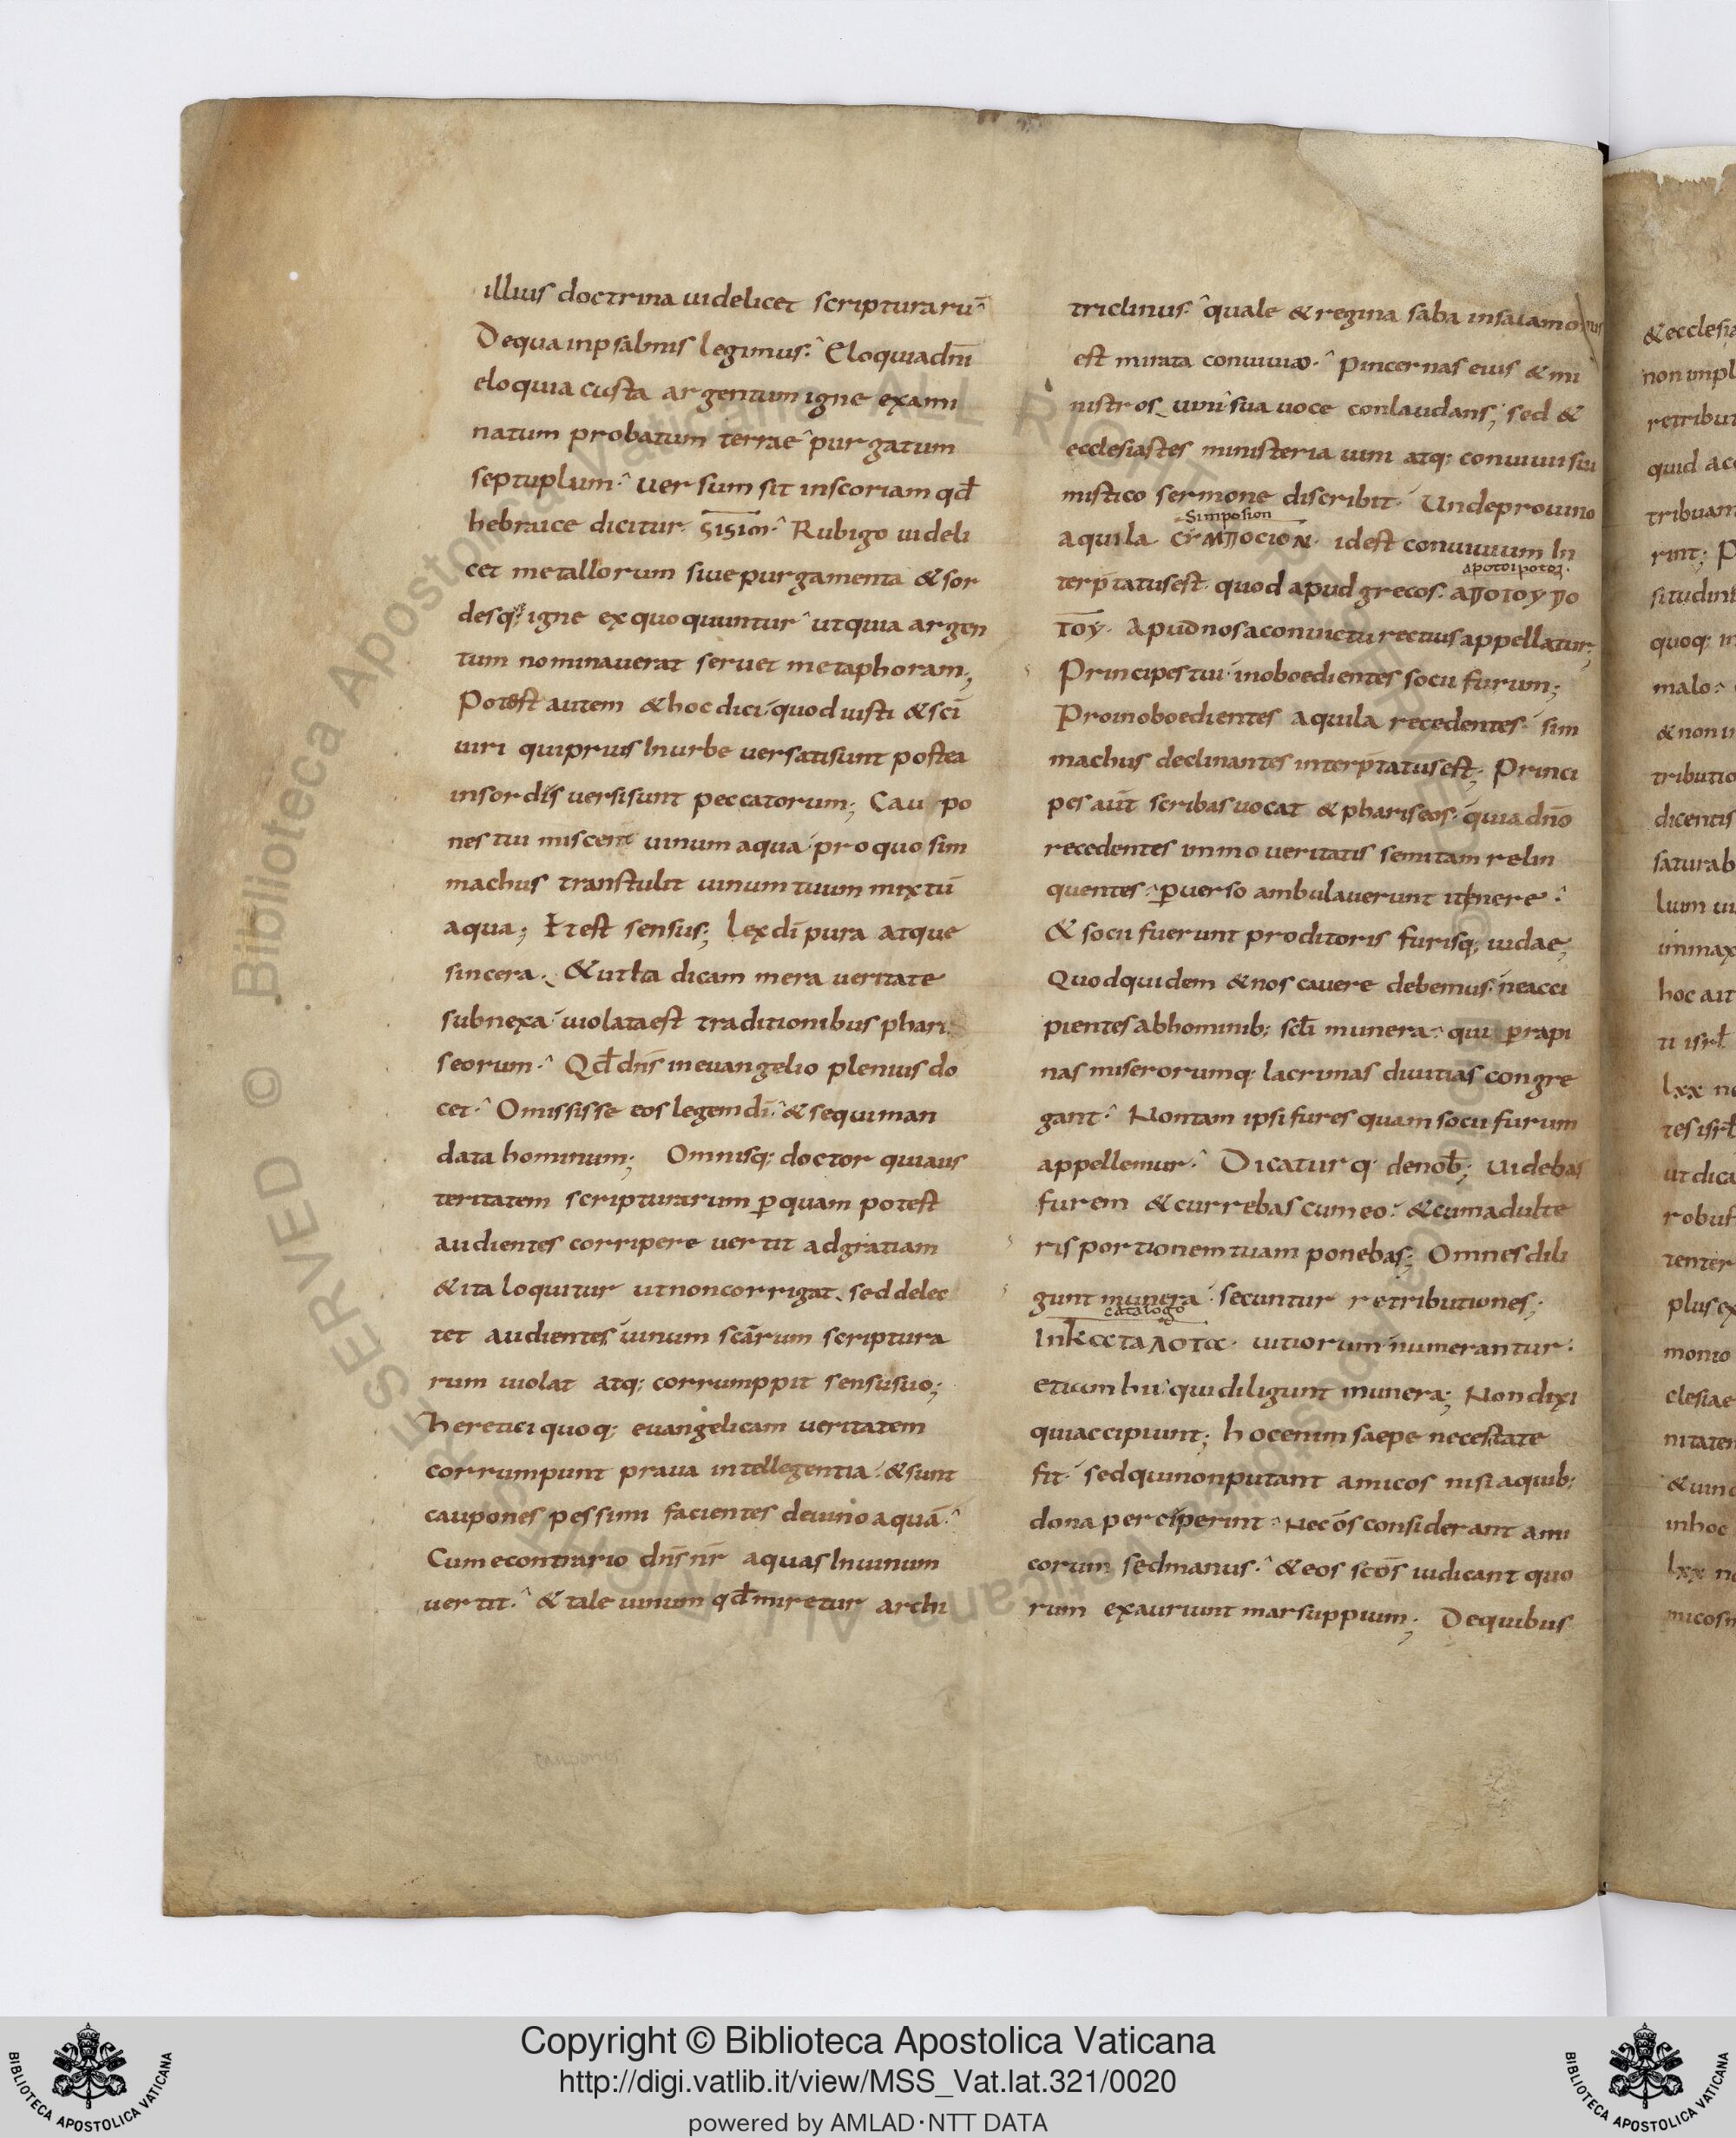 illius doctrina uidelicet scripturarū
De qua in psalmis legimus. Eloquia dn̄i
eloquia casta argentum igne exami
natum probatum terrae purgatum
septuplum. uersum sit in scoriam qđ
hebraice dicitur. SISIM. Rubigo uideli
cet metallorum siue purgamenta & sor
desq; igne ex quo quuntur ut quia argen
tum nominauerat seruet metaphoram;
Potest autem & hoc dici quod iusti & sc̄i
uiri qui prius In urbe uersati sunt postea
in sordis uersi sunt peccatorum; Cau po
nes tui miscent uinum aqua pro quo sim
machus transtulit uinum tuum mixtū
aqua; Et est sensus; Lex dī pura atque
sincera. & ut ita dicam mera ueritate
subnexa uiolata est traditionibus phari
seorum. Qđ dn̄s in euangelio plenius do
cet. Omississe eos legem dī. & sequi man
data hominum; Omnisq; doctor qui aus
teritatem scripturarum ꝑ quam potest
audientes corripere uertit ad gratiam
& ita loquitur ut non corrigat. sed delec
tet audientes uinum scārum scriptura
rum uiolat atq; corrumppit sensu suo;
heretici quoq; euangelicam ueritatem
corrumpunt praua intellegentia. & sunt
caupones pessimi facientes de uino aquā.
Cum econtrario dn̄s nr̄ aquas In uinum
uertit. & tale uinum qđ miretur archi
triclinus. quale & regina saba in salamonis
est mirata conuiuio. pincernas eius & mi
nistros uini sua uoce conlaudans; sed &
ecclesiastes ministeria uini atq; conuiui sui
mistico sermone discribit. Unde pro uino
Simposion
aquila. CYMΠOCION. id est conuiuium In
apotoipotoi.
terp̄tatus est. quod apud grecos. AΠOTOY ΠO
TOY. Apud nos a conuictu rectius appellatur;
Principes tui inoboedientes socii furum;
Pro inoboedientes aquila recedentes. sim
machus declinantes interp̄tatus est; Princi
pes aūt scribas uocat & phariseos. quia dn̄o
recedentes immo ueritatis semitam relin
quentes. ꝑuerso ambulauerunt itinere.
& socii fuerunt proditoris furisq; iudae;
Quod quidem & nos cauere debemus. ne acci
pientes ab hominib; scłi munera. qui ꝑ rapi
nas miserorumq; lacrimas diuitias congre
gant. Non tam ipsi fures quam socii furum
appellemur. Dicaturq. de nob̄; Uidebas
furem & currebas cum eo. & cum adulte
ris portionem tuam ponebas; Omnes dili
gunt munera. secuntur retributiones;
catalogo
In KATAΛOΓΩ. uitiorum numerantur.
etiam hii qui diligunt munera; Non dixi
qui accipiunt; hoc enim saepe necestate
fit. sed qui non putant amicos nisi a quib;
dona perciperint. Nec os considerant ami
corum sed manus. & eos sc̄os iudicant quo
rum exauriunt marsuppium; De quibus
& ecclesia
non impl
retribut
quid acc
tribuam
rint; P
situdin
quoq; in
malo.
& non in
tributio
dicentis
saturab
lum ui
in max
hoc ait
ti isrł
lxx no
tes isrł
ut dica
robust
tenter
plus ex
monio
clesiae
nitatem
& uino
in hoc
lxx no
micos n
Copyright © Biblioteca Apostolica Vaticana
http://digi.vatlib.it/view/MSS_Vat.lat.321/0020
powered by AMLAD·NTT DATA
BIBLIOTECA APOSTOLICA VATICANA
BIBLIOTECA APOSTOLICA VATICANA